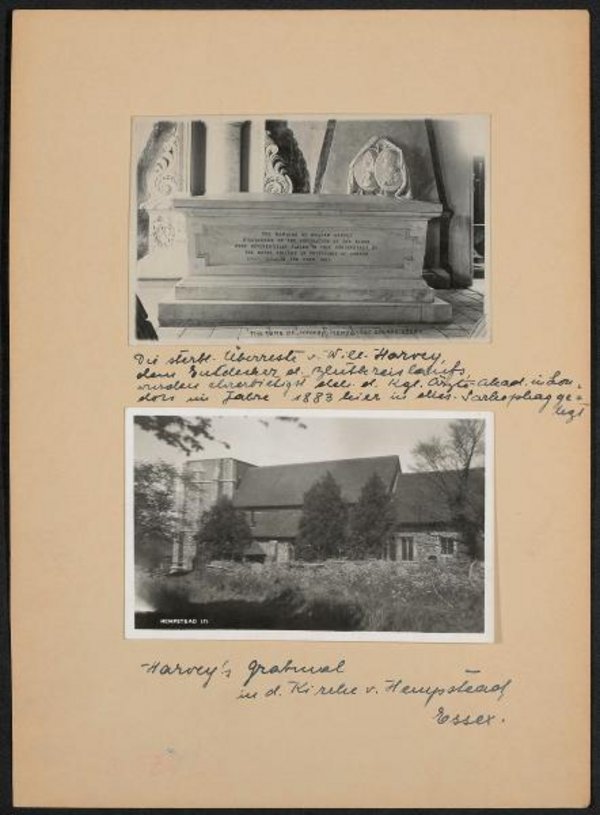 THE REMAINS OF WILLIAM HARVEY
DISCOVERER OF THE CIRCULATION OF THE BLOOD
WERE REVERENTIALLY PLACED IN THIS SARCOPHAGUS BY
THE ROYAL COLLEGE OF PHYSICIANS OF LONDON
IN THE YEAR 1883
THE TOMB OF HARVEY, HEMPSTEAD
Die sterbl. Überreste v. Will. Harvey,
dem Entdecker d. Blutkreislaufs,
wurden ehrerbietigst d. Kgl. Ärzte-Akad. in Lon-
don im Jahre 1883 hier in Sarkophag ge-
legt
HEMPSTEAD
Harvey's Grabmal
in d. Kirche v. Hempstead
Essex.